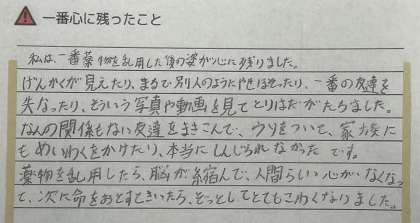 一番心に残ったこと
私は、一番薬物を乱用した後の姿が心に残りました。
げんかくが見えたり、まるで別人のようにやせほそったり、一番の友達を
失なったり、そういう写真や動画を見てとりはだがたちました。
なんの関係もない友達をまきこんで、ウソをついて、家族に
もめいわくをかけたり、本当にしんじられなかったです。
薬物を乱用したら、脳が縮んで、人間らしい心がなくなっ
て、次に命をおとすときいたら、ぞっとしてとてもこわくなりました。